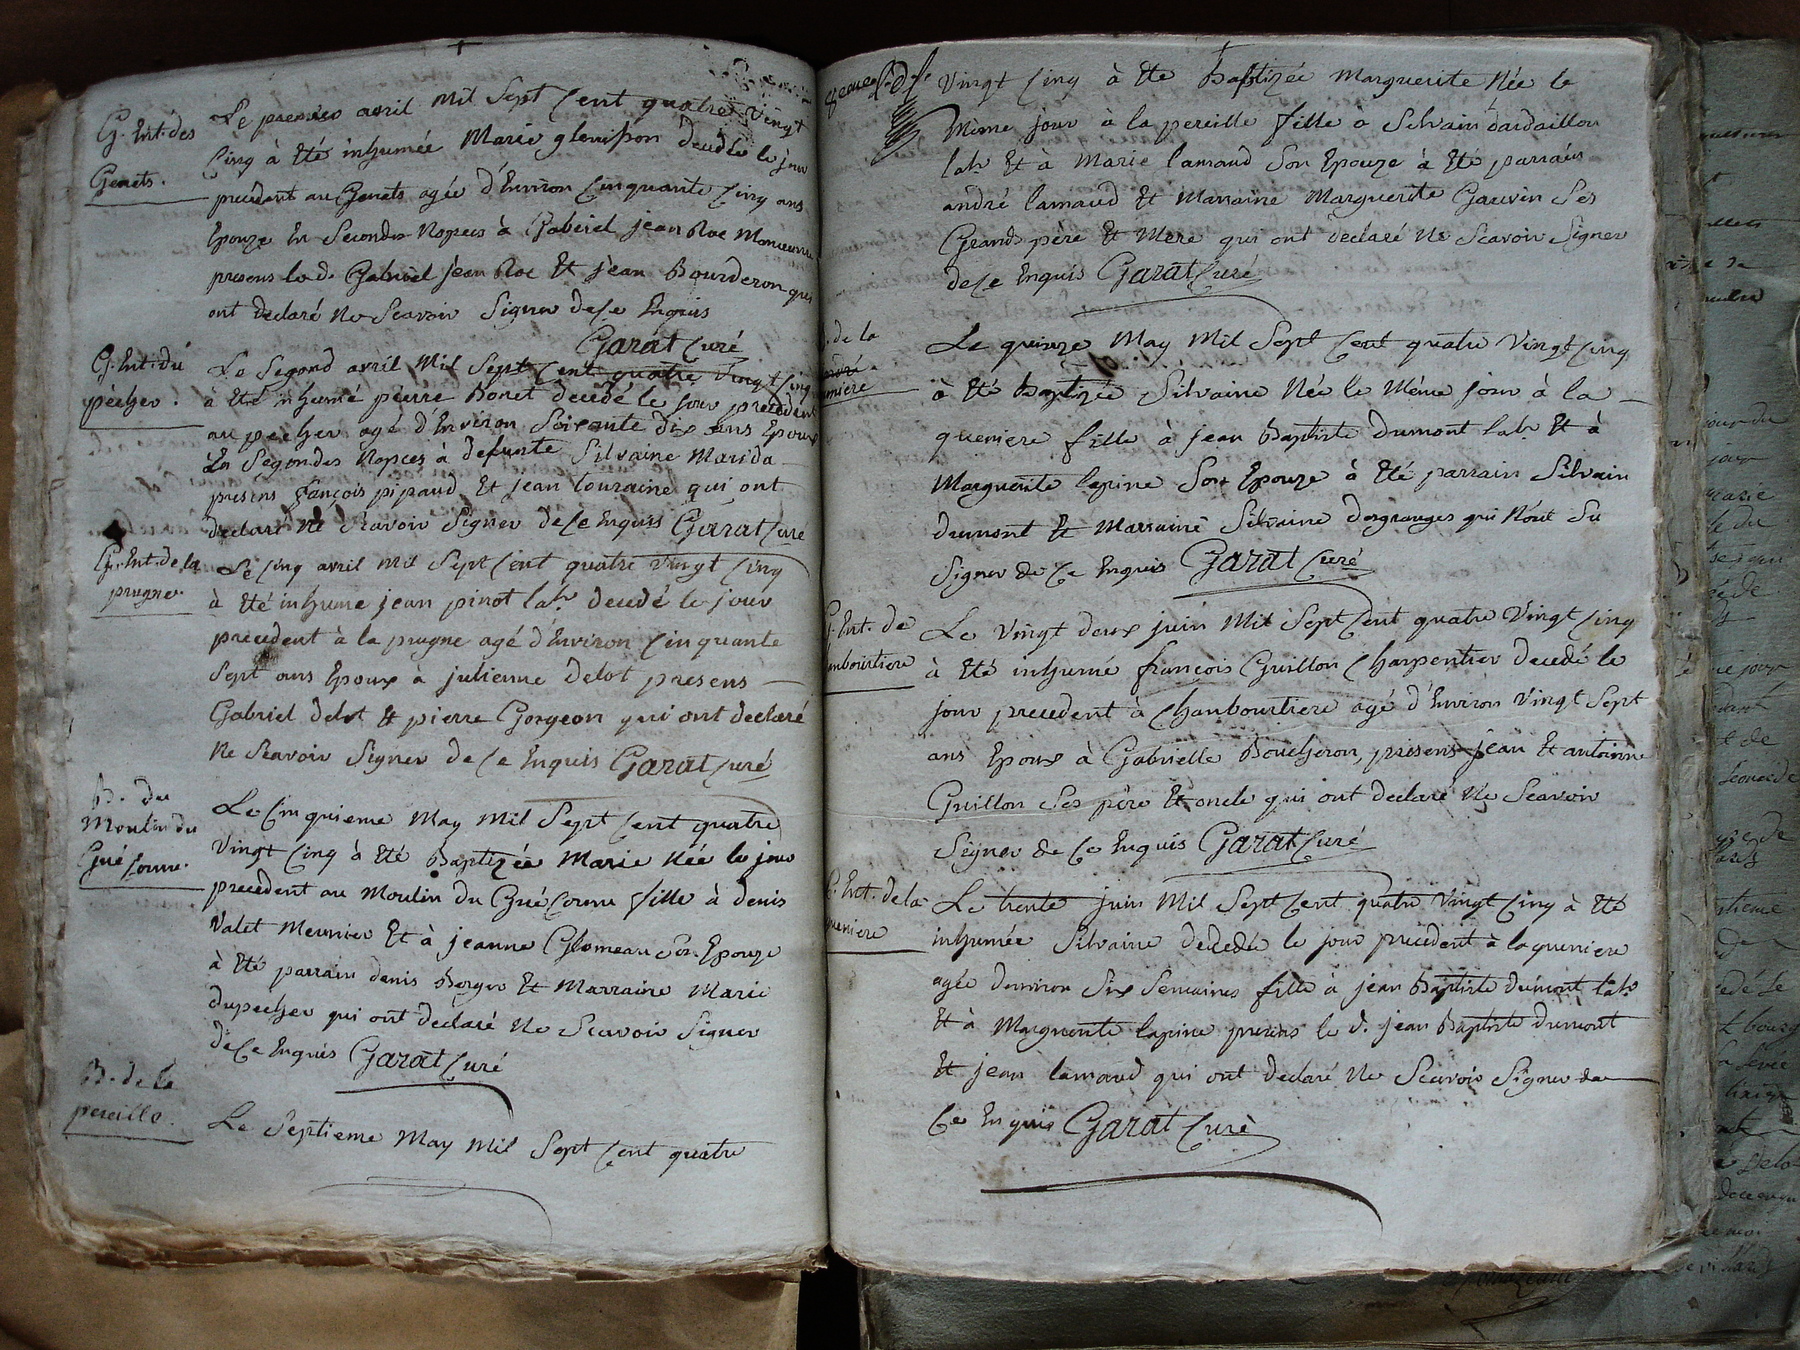 G. Ent. des
Genets.
Le premier avril Mil Sept Cent quatre Vingt
Cinq à Eté inhumée Marie glenisson decedée le jour
precedent au Genets agée d'Environ Cinquante Cinq ans
Epouze En Secondes Nopces à Gabriel jean Roc Manœuvre
presens le d. Gabriel jean Roc Et jean Bourderon qui
ont declaré Ne Scavoir Signer de Ce Enquis
Garat Curé
G. Ent. du
pècher.
Le Segond avril Mil Sept Cent quatre Vingt Cinq
à Eté inhumé pierre Bonet decedé le jour precedent
au pecher agé d'Environ Soixante dix ans Epoux
En Segondes Nopces à defunte Silvaine Marida
presens françois pipaud Et jean touraine qui ont
declaré Ne Scavoir Signer de Ce Enquis Garat Curé
G. Ent. de la
prugne.
Le Cinq avril Mil Sept Cent quatre Vingt Cinq
à Eté inhumé jean pinot labr. decedé le jour
precedent à la prugne agé d'Environ Cinquante
Sept ans Epoux à julienne delot presens
Gabriel delot Et pierre Gorgeon qui ont declaré
Ne Scavoir Signer de Ce Enquis Garat Curé
B. du
Moulin du
Gué Cornu.
Le Cinquieme May Mil Sept Cent quatre
Vingt Cinq à Eté Baptizée Marie Née le jour
precedent au Moulin du Gué Cornu fille à denis
Valet Meunier Et à jeanne Glomeau Son Epouze
à Eté parrain denis Berger Et Marraine Marie
dupecher qui ont declaré Ne Scavoir Signer
de Ce Enquis Garat Curé
B. de la
pereille.
Le Septieme May Mil Sept Cent quatre
Vingt Cinq à Eté Baptizée Marguerite Née le
Même jour à la pereille fille à Silvain dardaillon
labr. Et à Marie lamaud Son Epouze à Eté parrain
andré lamaud Et Marraine Marguerite Gauvin Ses
Grands père Et Mere qui ont declaré Ne Scavoir Signer
de Ce Enquis Garat Curé
. de la
Le quinze May Mil Sept Cent quatre Vingt Cinq
à Eté Baptizée Silvaine Née le Même jour à la
queniere fille à jean Baptiste dumont labr. Et à
Marguerite lepine Son Epouze à Eté parrain Silvain
dumont Et Marraine Silvaine desgranges qui N'ont Su
Signer de Ce Enquis Garat Curé
G. Ent. de
hanbourtiere
Le Vingt deux juin Mil Sept Cent quatre Vingt Cinq
à Eté inhumé françois Guillon Charpentier decedé le
jour precedent à Chanbourtiere agé d'Environ Vingt Sept
ans Epoux à Gabrielle Boucheron, presens jean Et antoinne
Guillon Ses père Et oncle qui ont declaré Ne Scavoir
Signer de Ce Enquis Garat Curé
Ent. de la
queniere
Le trente juin Mil Sept Cent quatre Vingt Cinq à Eté
inhumée Silvaine decedée le jour precedent à la queniere
agée d'environ Six Semaines fille à jean Baptiste dumont labr.
Et à Marguerite lapine presens le d. jean Baptiste dumont
Et jean lamaud qui ont declaré Ne Scavoir Signer de
Ce Enquis Garat Curé